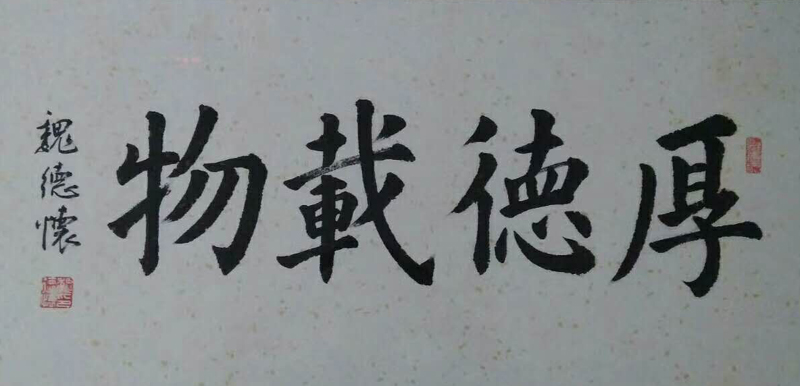 厚德載物
魏德懷